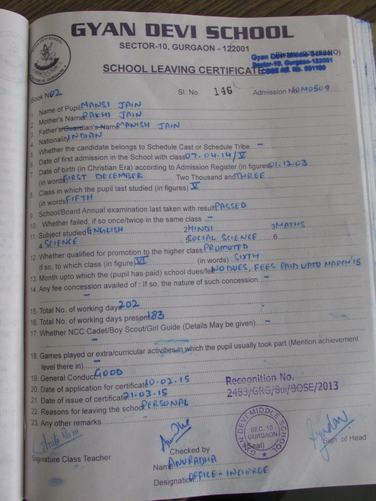 GYAN DEVI SCHOOL
SECTOR-10, GURGAON - 122001
SCHOOL LEAVING CERTIFICATE
Book No 02 Sl. No. 146 Admission No DM0509
1. Name of Pupil MANSI JAIN
2. Mother's Name RAKHI JAIN
3. Father's/Guardian's Name MANISH JAIN
4. Nationality INDIAN
5. Whether the candidate belongs to Schedule Cast or Schedule Tribe. -
6. Date of first admission in the School with class 07.04.14/V
7. Date of birth (in Christian Era) according to Admission Register (in figure) 01.12.03
(in words) FIRST DECEMBER Two Thousand and THREE
8. Class in which the pupil last studied (in figures) V
(in words) FIFTH
9. School/Board Annual examination last taken with result PASSED
10. Whether failed, if so once/twice in the same class -
11. Subject studied 1 ENGLISH 2 HINDI 3 MATHS
4 SCIENCE 5 SOCIAL SCIENCE 6
12. Whether qualified for promotion to the higher class PROMOTED
if so, to which class (in figure) VI (in words) SIXTH
13. Month upto which the (pupil has paid) school dues/fee NO DUES, FEES PAID UPTO MARCH'15
14. Any fee concession availed of : If so, the nature of such concession. -
15. Total No. of working days 202
16. Total No. of working days present 183
17. Whether NCC Cadet/Boy Scout/Girl Guide (Details May be given) -
18. Games played or extra/curricular activities in which the pupil usually took part (Mention achievement
level there in) -
19. General Conduct GOOD
20. Date of application for certificate 10.03.15
21. Date of issue of certificate 21.03.15
22. Reasons for leaving the school PERSONAL
23. Any other remarks -
Recognition No.
GYAN DEVI MIDDLE SCHOOL
SEC. 10
GURGAON
(Seal)
Signature Class Teacher
Checked by
Name ANURADHA
Designation OFFICE-INCHARGE
Sign of Head